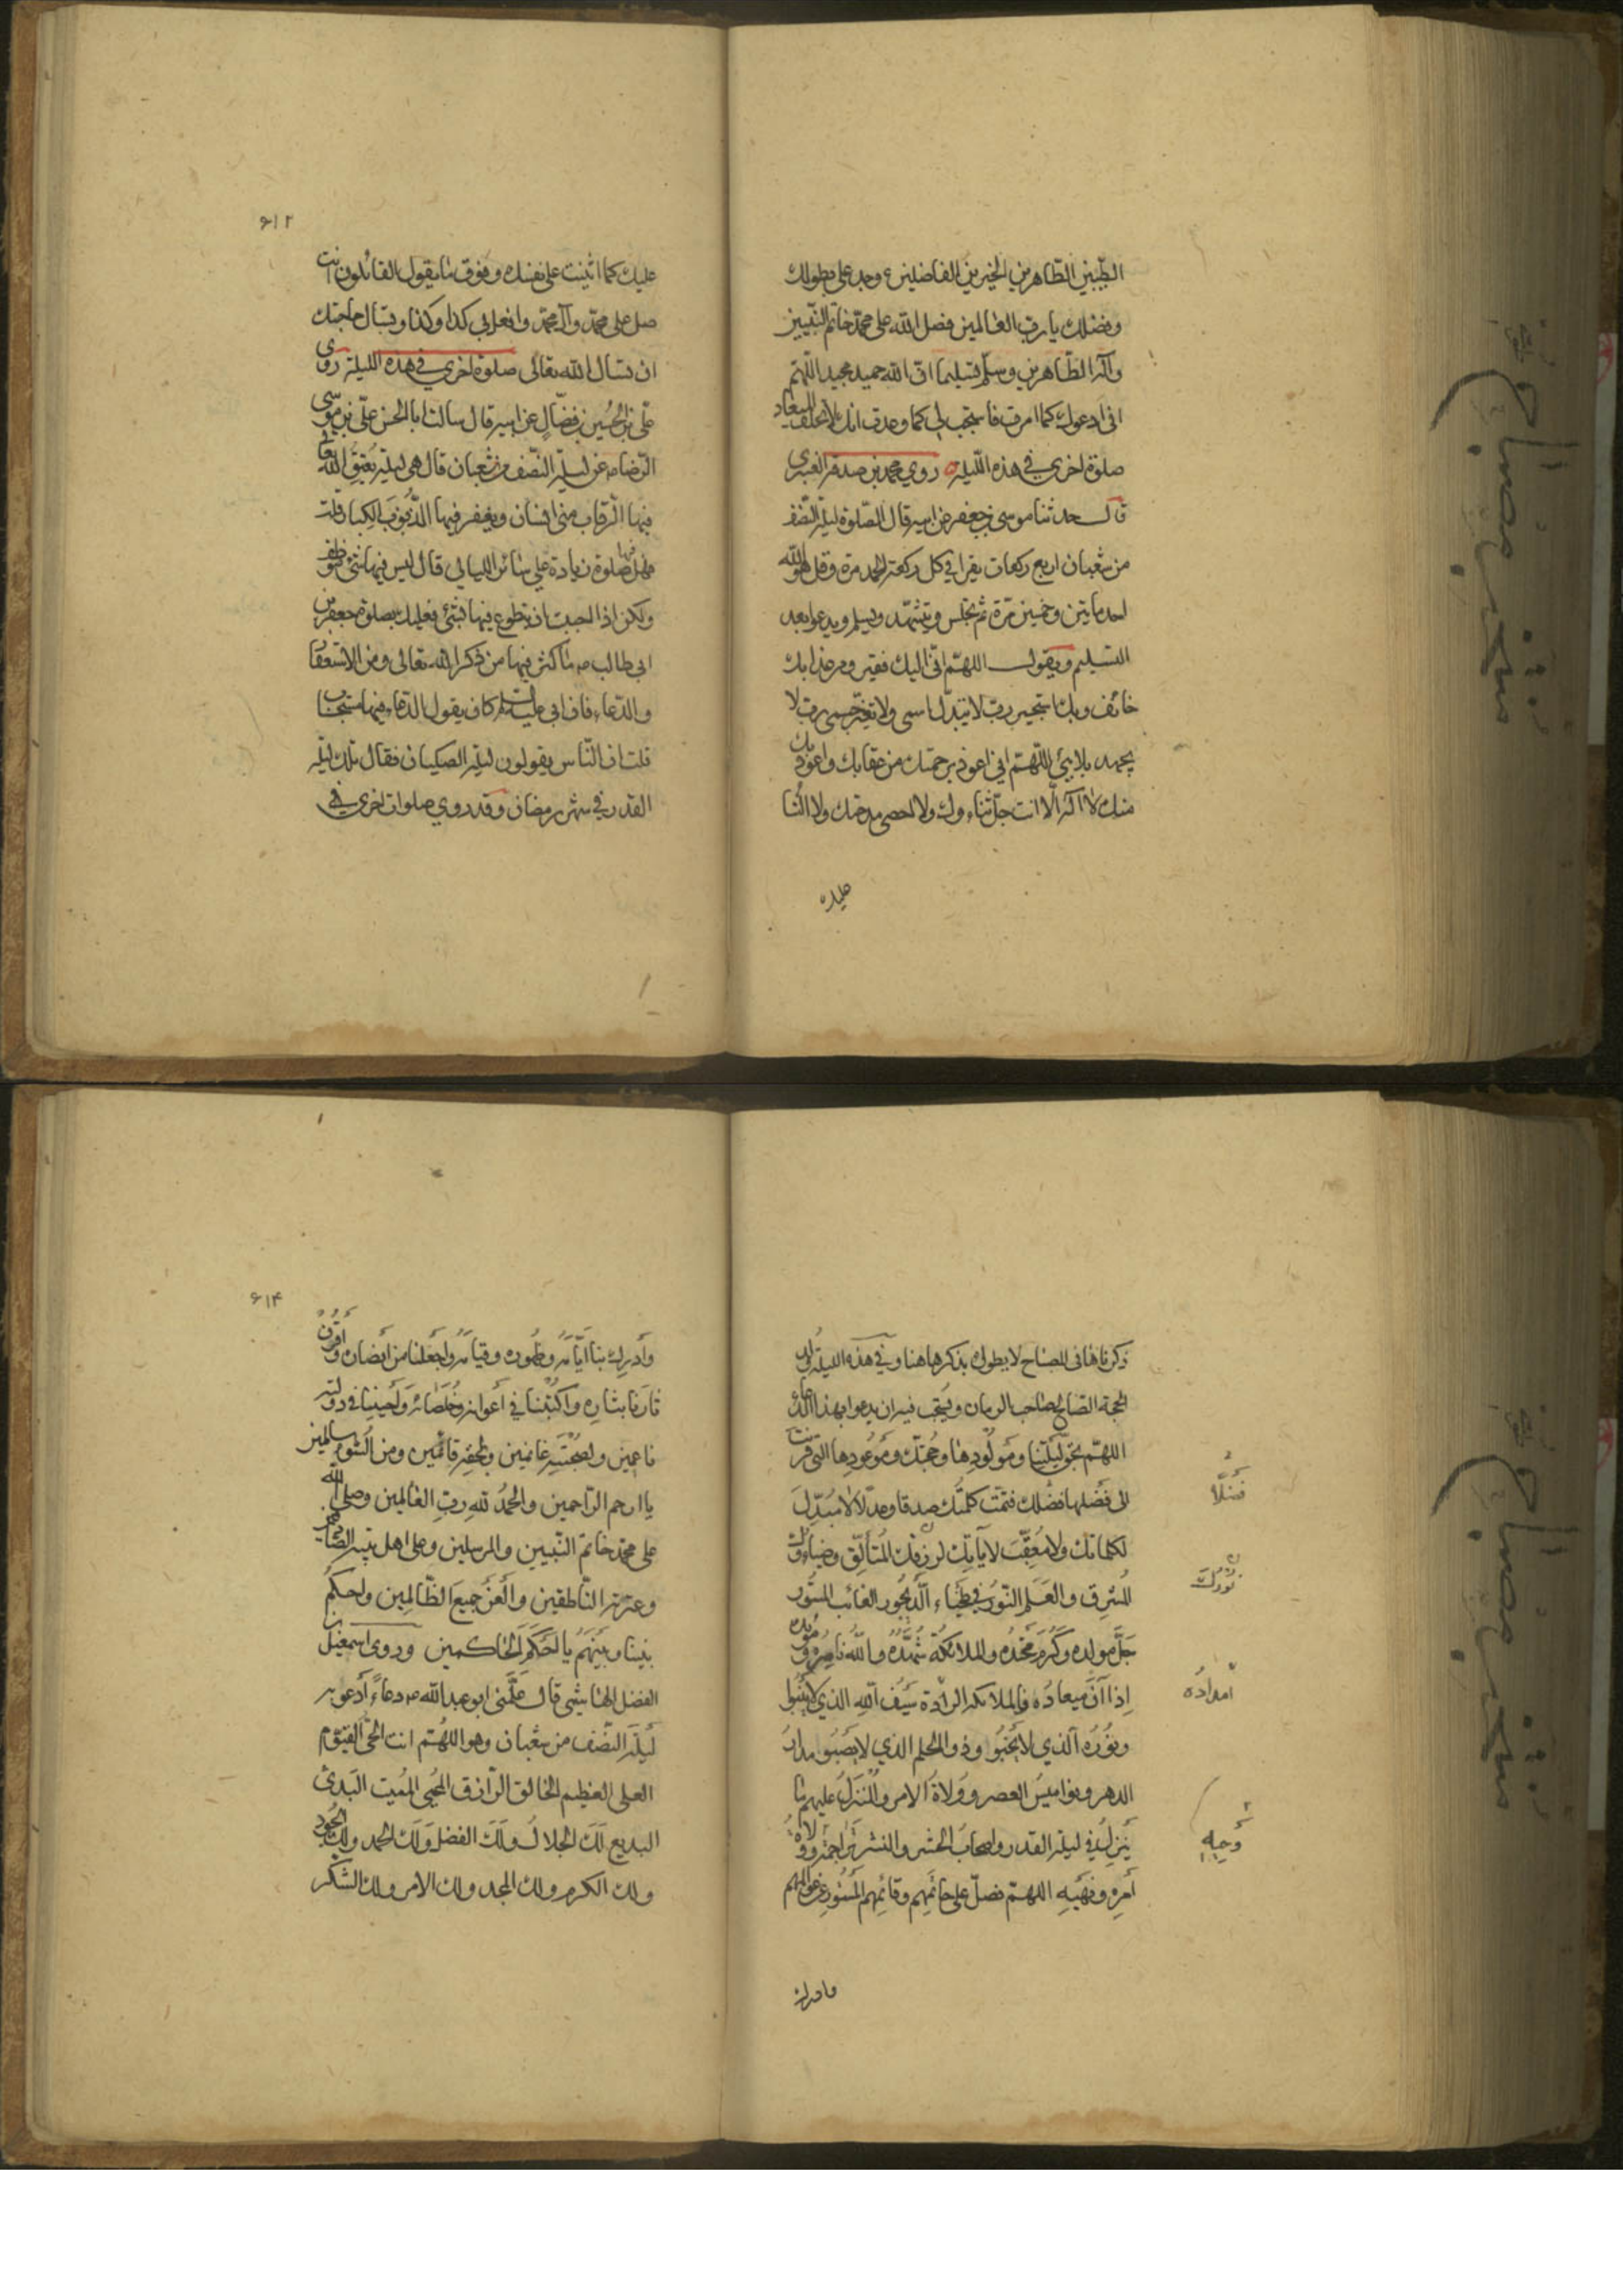 الطيبين الطاهرين الخيرين الفاضلين وجد علي بطولك
وفضلك يا رب العالمين فصل الله على محمد خاتم النبيين
وآله الطاهرين وسلم تسليما ان الله حميد مجيد اللهم
اني ادعوك كما امرت فاستجب لي كما وعدت انك لا تخلف الميعاد
صلوة اخرى في هذه الليلة روي محمد بن صدقة العنبري
قال حدثنا موسى بن جعفر عن ابيه قال الصلوة ليلة النصف
من شعبان اربع ركعات يقرا في كل ركعة الحمد مرة وقل هو الله
احد مايتين وخمسين مرة ثم تجلس وتتشهد وتسلم ويدعو بعد
التسليم ويقول اللهم اني اليك فقير ومن عذابك
خائف وبك استجير رب لا تبدل اسمي ولا تغير جسمي رب لا
تجهد بلائي اللهم اني اعوذ برحمتك من عقابك واعوذ بك
منك لا اله الا انت جل ثناؤك ولا احصي مدحتك ولا الثنا
عليك
۶۱۲
عليك كما اثنيت على نفسك وفوق ما يقول القائلون انت
صل على محمد وآل محمد وافعل بي كذا وكذا وتسال حاجتك
ان تسال الله تعالى صلوة اخرى في هذه الليلة روى
علي بن الحسين بن فضال عن ابيه قال سالت ابا الحسن علي بن موسى
الرضا عن ليلة النصف من شعبان قال هي ليلة يعتق الله تعالى
فيها الرقاب من النيران ويغفر فيها الذنوب الكبار قلت
فهل فيها صلوة زيادة على سائر الليالي قال ليس فيها شئ موظف
ولكن اذا احببت ان تطوع فيها بشئ فعليك بصلوة جعفر بن
ابي طالب ما كثر فيها من ذكر الله تعالى ومن الاستغفار
والدعاء فان ابي عليه السلم كان يقول الدعاء فيها مستجاب
قلت ان الناس يقولون ليلة الصكيان فقال تلك ليلة
القدر في شهر رمضان وقد روي صلوات اخرى في
ذكرناها في المصباح لا يطول بذكرها هنا وفي هذه الليلة ولد
الحجة الصالح صاحب الزمان ويستحب فيه ان يدعوا بهذا الدعاء
اللهم بحق ليلتنا ومولودها وحجتك وموعودها التي قرنت
الى فضلها فضلك فتمت كلمتك صدقا وعدلا لا مبدل
لكلماتك ولا معقب لآياتك نورك المتألق وضياؤك
المشرق والعلم النور في طخياء الديجور الغائب المستور
جل مولده وكرم محتده والملائكة شهده والله ناصره ومؤيده
إذا آن ميعاده فالملائكة امداده سيف الله الذي لا ينبو
ونوره الذي لا يخبو وذو الحلم الذي لا يصبو مدار
الدهر ونواميس العصر وولاة الامر والمنزل عليهم ما
ينزل في ليلة القدر واصحاب الحشر والنشر تراجمة وحيه وولاة
أمره ونهيه اللهم فصل على خاتمهم وقائمهم المستور عن عوالمهم
فضلا
نورك
امداده
وحيه
وادرك
۶۱۴
وأدرك بنا أيامه وظهوره وقيامه واجعلنا من أنصاره وأقرن
ثارنا بثاره واكتبنا في أعوانه وخلصائه وأحينا في دولته
ناعمين وبصحبته غانمين وبحقه قائمين ومن السوء سالمين
يا ارحم الراحمين والحمد لله رب العالمين وصلى الله
على محمد خاتم النبيين والمرسلين وعلى اهل بيته الصادقين
وعترته الناطقين والعن جميع الظالمين واحكم
بيننا وبينهم يا احكم الحاكمين وروى اسمعيل بن
الفضل الهاشمي قال علمني ابو عبد الله دعاء أدعو به
ليلة النصف من شعبان وهو اللهم انت الحي القيوم
العلي العظيم الخالق الرازق المحيي المميت البدئ
البديع لك الجلال ولك الفضل ولك الحمد ولك الجود
ولك الكرم ولك المجد ولك الامر ولك الشكر